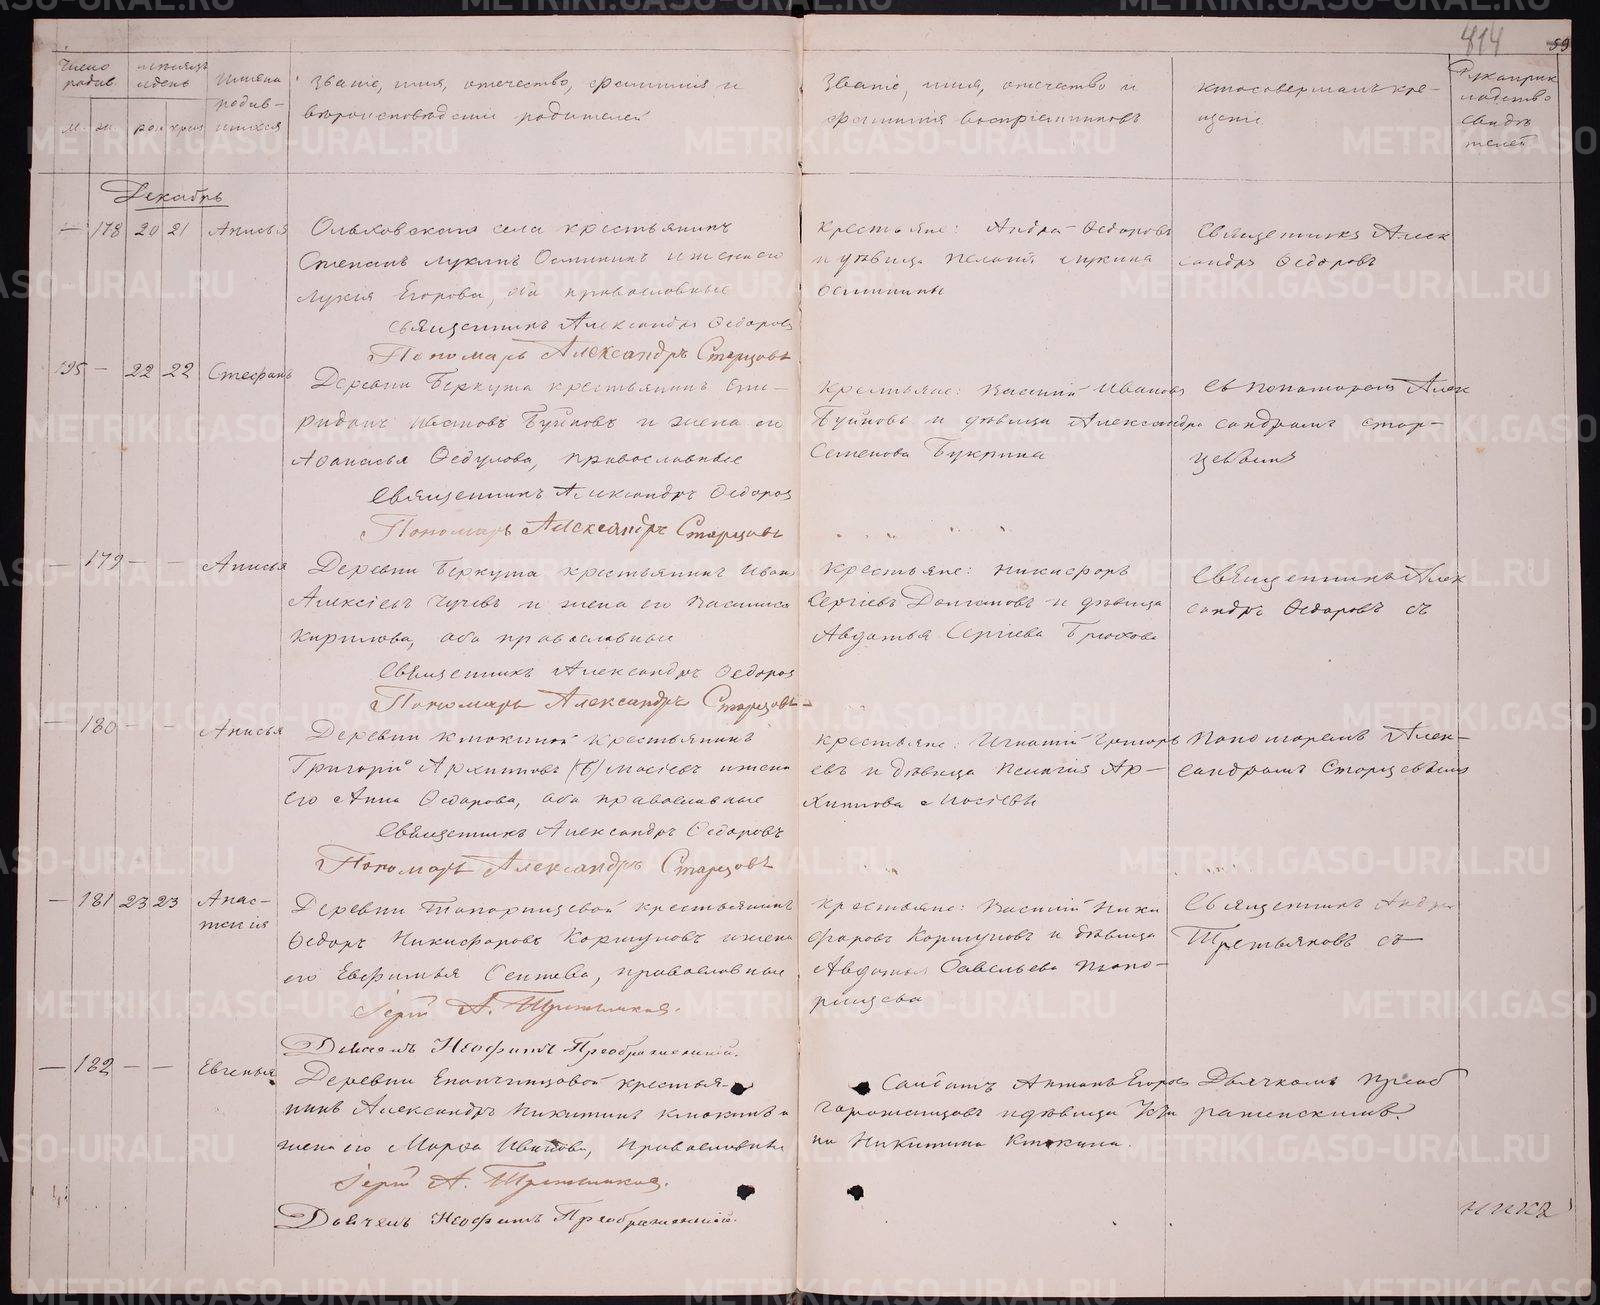 814
59
Число родив.
м. ж.
месяцъ и день
рож. крещ.
Имена родив-
шихся
Званіе, имя, отечество, фамилія и
вѣроисповѣданіе родителей
Званіе, имя, отечество и
фамилія воспріемниковъ
кто совершалъ кре-
щеніе
Рукоприк
ладство
свидѣ
телей
Декабрь
— 178 20 21 Анисья
Ольховскаго села крестьянинъ
Степанъ Лукинъ Осминин и жена его
Лукия Егорова, оба православные
Священникъ Александръ Ѳедоровъ
Пономарь Александръ Старцовъ
Крестьяне: Андрей Ѳедоровъ
и дѣвица Пелагія Лукина
Осминины
Священникъ Алек
сандръ Ѳедоровъ
195 — 22 22 Стефанъ
Деревни Беркута крестьянинъ Спи-
ридонъ Ивановъ Буйновъ и жена его
Аѳанасья Ѳедулова, православные
Священникъ Александръ Ѳедоровъ
Пономарь Александръ Старцовъ
Крестьяне: Василій Ивановъ
Буйновъ и дѣвица Александра
Семенова Букрина
съ пономаремъ Алек
сандромъ Стар-
цевымъ
— 179 — — Анисья
Деревни Беркута крестьянинъ Иванъ
Алексѣевъ Чучевъ и жена его Василиса
Кирилова, оба православные
Священникъ Александръ Ѳедоровъ
Пономарь Александръ Старцовъ
Крестьяне: Никифоръ
Сергіевъ Долгановъ и дѣвица
Авдотья Сергіева Брюхова
Священникъ Алек
сандръ Ѳедоровъ съ
— 180 — — Анисья
Деревни Клюкиной крестьянинъ
Григорій Архиповъ Мосіевъ и жена
его Анна Ѳедорова, оба православные
Священникъ Александръ Ѳедоровъ
Пономарь Александръ Старцовъ
Крестьяне: Игнатій Григорь
евъ и дѣвица Пелагія Ар-
хипова Мосіевы
Пономаремъ Алек-
сандромъ Старцевымъ
— 181 23 23 Анас-
тасія
Деревни Топорищевой крестьянинъ
Ѳедоръ Никифоровъ Коршуновъ и жена
его Евфимья, православные
Іерей А. Третьяковъ.
Дьячекъ Неофитъ Преображенскій.
Крестьяне: Василій Ники
форовъ Коршуновъ и дѣвица
Авдотья Савельева Топо-
рищева
Священникъ Андрей
Третьяковъ съ
— 182 — — Евгенья
Деревни Епанчинцовой крестья-
нинъ Александръ Никитинъ Клюкинъ и
жена его Марѳа Иванова, православные
Іерей А. Третьяковъ.
Дьячекъ Неофитъ Преображенскій.
Солдатъ Антонъ Егоровъ
и дѣвица Усти
на Никитина Клюкина.
Дьячкомъ Преоб
раженскимъ.